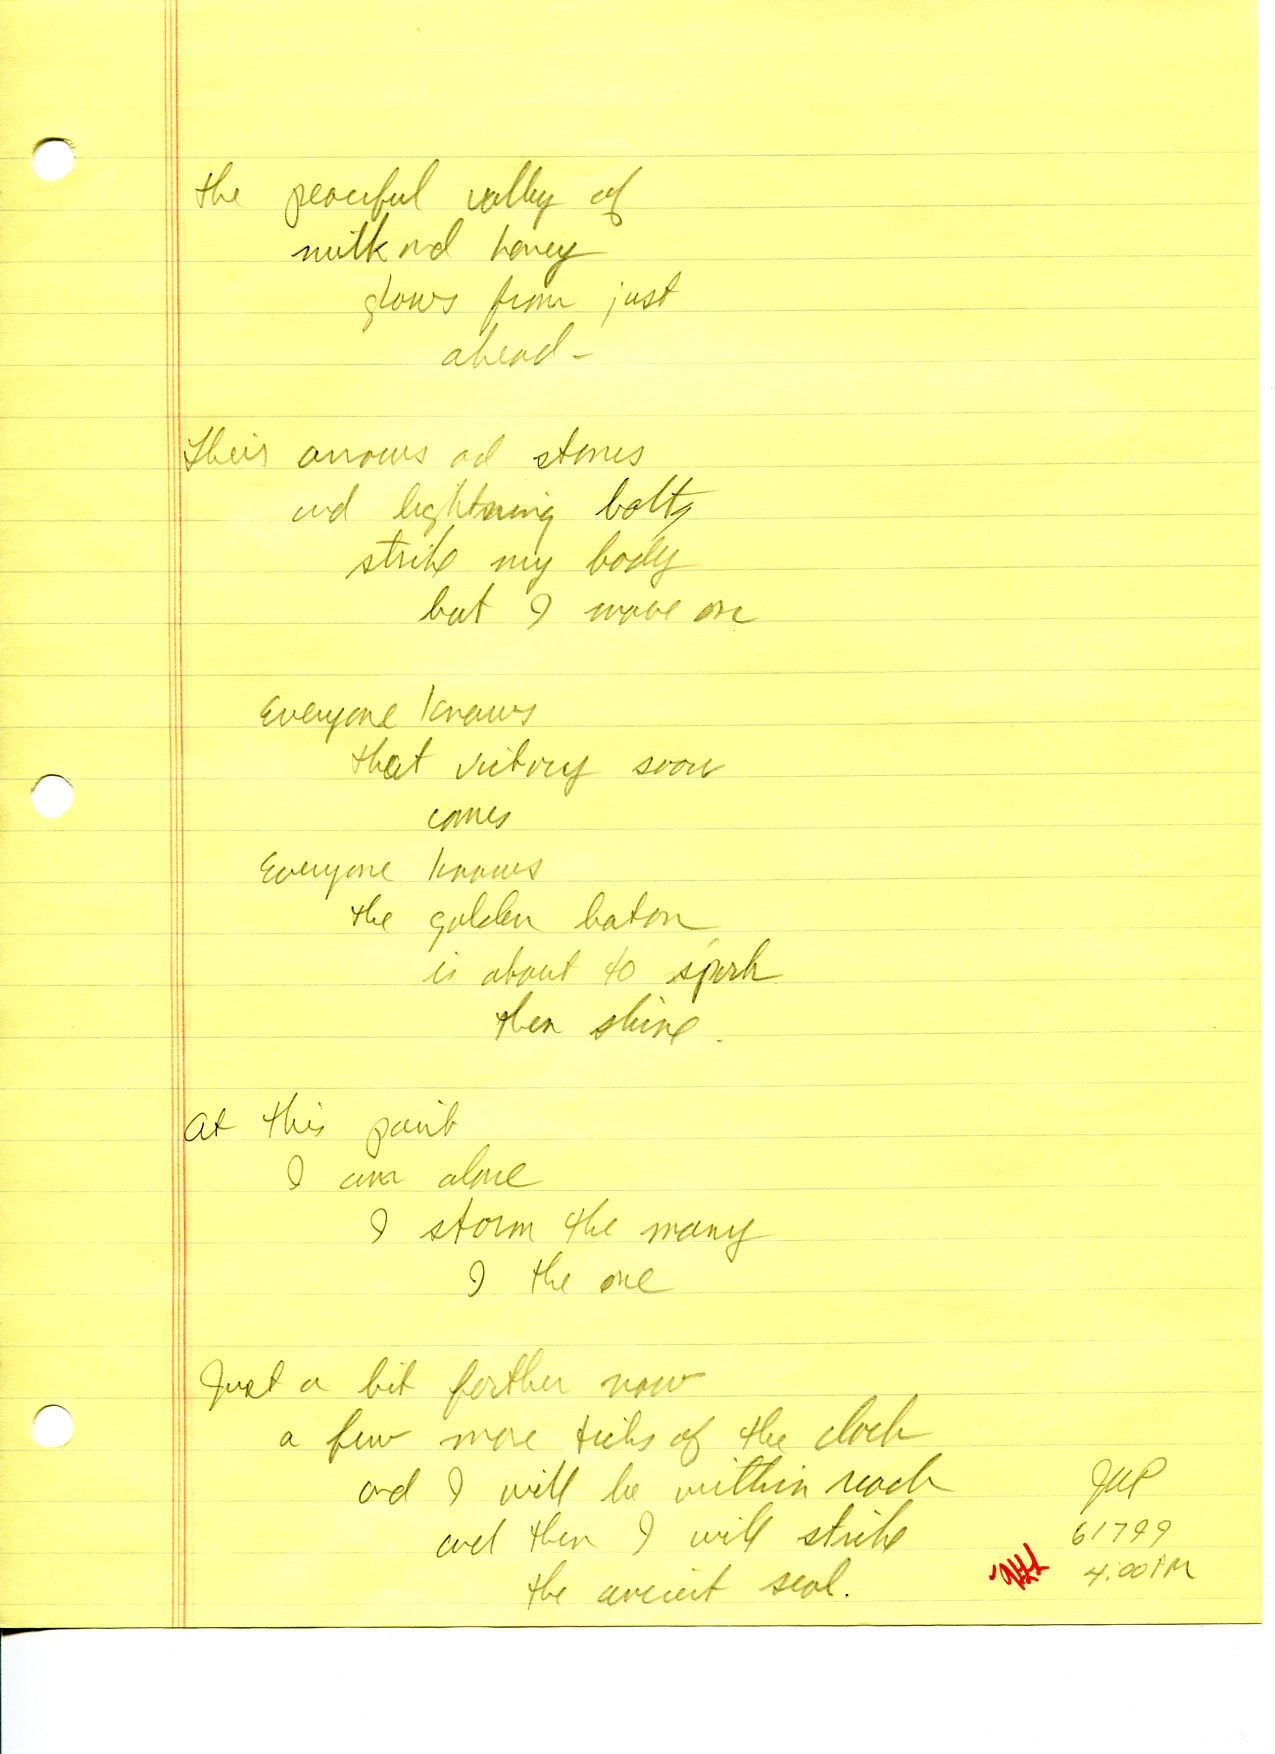 the peaceful valley of
milk and honey
glows from just
ahead -
their arrows ad stones
and lightning bolts
strike my body
but I move on
Everyone knows
that victory soon
comes
Everyone knows
the golden baton
is about to spark
then shine.
at this point
I am alone
I storm the many
I the one
Just a bit further now
a few more ticks of the clock
and I will be within reach
and then I will strike
the ancient seal.
61799
4:00 PM